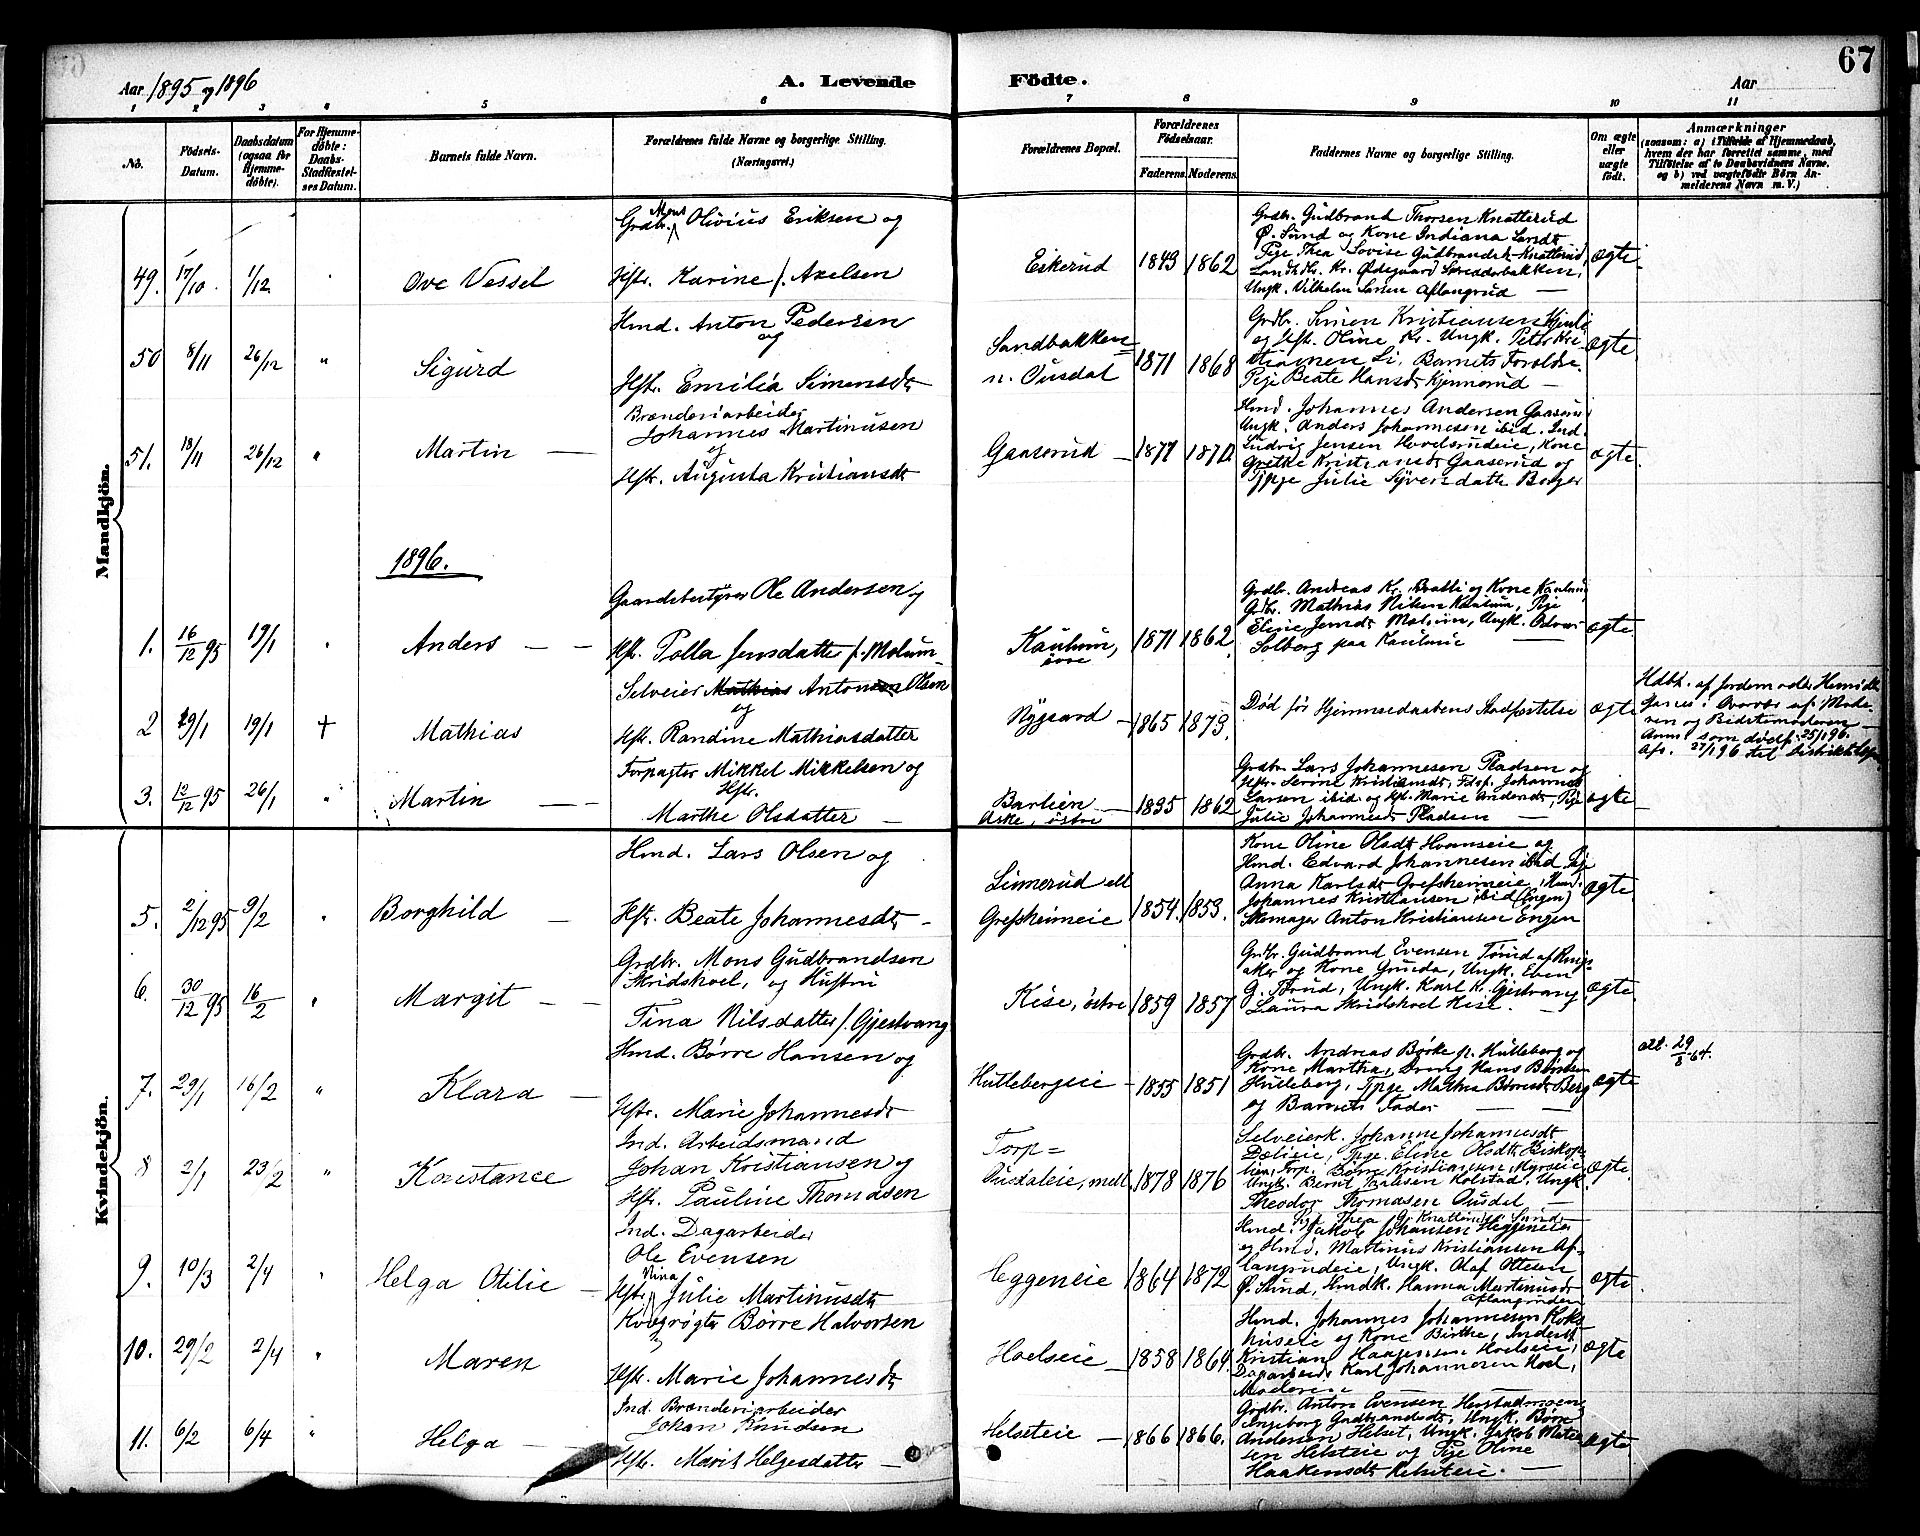 67
Aar 1895 og 1896
A. Levende
Fødte.
Aar
1 2 3 4 5 6 7 8 9 10 11
No.
Fødsels-
Datum.
Daabsdatum
(ogsaa for
Hjemme-
døbte).
For Hjemme-
døbte:
Daabs-
Stadfæstel-
ses Datum.
Barnets fulde Navn.
Forældrenes fulde Navne og borgerlige Stilling.
(Næringsvei.)
Forældrenes Bopæl.
Forældrenes
Fødselsaar.
Faderens. Moderens.
Faddernes Navne og borgerlige Stilling.
Om ægte
eller
uægte
født.
Anmærkninger
(saasom: a) i Tilfælde af Hjemmedaab,
hvem der har forrettet samme, med
Tilføielse af to Daabsvidners Navne.
og b) ved uægtefødte Børn An-
melderens Navn m. V.)
Mandkjøn.
49. 17/10. 1/12 " Ove Vessel
Grdbr. Mons Olivius Eriksen og
Hstr. Karine f. Axelsen
Eskerud 1843 1862
Grdbr. Gudbrand Thorsen Knatterud
Ø. Sund og Kone Indiana Larsdt
Pige Thea Lovise Gudbrandsdt Knatterud,
Landhdl. Kr. Ødegaard
Ungk. Vilhelm Larsen Aflangrud —
ægte
50 8/11 26/12 " Sigurd
Hmd. Anton Pedersen
og
Hstr. Emilia Simensdt
Sandbakken
n. Ousdal 1871 1868
Grdbr. Simen Kristiansen
og Hstr. Oline Kr. Ungk. Peter Kri-
stiansen Li. Barnets Forældre.
Pige Beate Hansdt Kjønnerud —
ægte
51. 18/11 26/12 " Martin —
Brænderiarbeider
Johannes Martinusen
og
Hstr. Augusta Kristiansdt
Gaaserud — 1877 1870
Hmd. Johannes Andersen Gaaserud
Ungk. Anders Johannesen ibid. Ind.
Ludvig Jensen Hovelsrudeie, Kone
Grethe Kristiansdt Gaaserud og
Tjpge Julie Syversdatter Berger
ægte.
1896.
1. 16/12 95 19/1 " Anders — —
Gaardsbestyrer Ole Andersen og
Hstr. Polla Jensdatter f. Molum —
Kaulum,
øvre 1871 1862
Grdbr. Andreas Kr. Bratli og Kone Kaulum,
Grdbr. Mathias Nilsen Kaulum, Pige
Eline Jensdt Molum, Ungk.
Solberg paa Kaulum —
ægte
2 19/1 19/1 + Mathias
Selveier Mathias Antonsen Olsen
og
Hstr. Randine Mathiasdatter
Nygaard — 1865 1873.
Død før Hjemmedaabens Stadfæstelse
ægte
Hdbt. af Jordemoder
Overv. af Mode-
ren og Bedstemoderen —
Anm. som død 25/1 96.
Afs. 27/1 96 til
3. 12/12 95 26/1 " Martin —
Forpagter Mikkel Mikkelsen og
Hstr.
Marthe Olsdatter —
Barlien —
Aske, østre 1835 1862
Grdbr. Lars Johannesen Pladsen og
Hstr. Serine Kristiansdt, Forp. Johannes
Larsen ibid. og Hst. Marie Andersdt, Pige
Julie Johannesdt Pladsen —
ægte —
Kvindekjøn.
5. 2/12 95 9/2 " Borghild —
Hmd. Lars Olsen og
Hstr. Beate Johannesdt —
Linnerud ell
Grefsheimeie 1854. 1853.
Kone Oline Olsdt Hvamseie og
Hmd. Edvard Johannesen ibid Pige
Anna Karlsdt Grefsheimeie, Hmd.
Johannes Kristiansen ibid (Engen)
Skomager Anton Kristiansen Engen
ægte.
6. 30/12 95 16/2 " Margit — —
Grdbr. Mons Gudbrandsen
Skridshoel, og Hustru
Tina Nilsdatter f. Gjestvang
Kise, østre 1859 1857
Grdbr. Gudbrand Evensen Tørud af Rings-
aker og Kone Gunda, Ungk. Even
G. Tørud, Ungk. Karl K. Gjestvang,
Laura Skridshoel Kise. —
ægte
7. 29/1 16/2 " Klara —
Hmd. Børre Hansen og
Hstr. Marie Johannesdt
Hullebergeie — 1855 1851
Grdbr. Andreas Børke p. Hulleberg og
Kone Martha, Dreng Hans Børresen
Hulleberg, Tpge Mathia Børresdt Berg
og Barnets Fader — —
ægte
att. 29/8-64.
8 2/1 23/2 " Konstance
Ind. Arbeidsmand
Johan Kristiansen og
Hstr. Pauline Thomasen
Torp=
Ousdaleie, mell. 1878 1876
Selveierk. Johanne Johannesdt
Dælieie, Tpge. Eline Olsdt Biskop-
lien, Forp. Børre Kristiansen Myrseie
Ungk. Bernt Paulsen Kolstad, Ungk.
Theodor Thomasen Ousdal —
ægte.
9. 10/3 2/4 " Helga Otilie —
Ind. Dagarbeider
Ole Evensen
Hstr. Nina Julie Martinusdt
Eggeneie 1864 1872
Pige Thea G. Knatterud Sund —
Hmd. Jakob Johansen Heggeneie
og Hmd. Martinus Kristiansen Af-
langrudeie, Ungk. Olaf Ottesen
Ø. Sund, Hmdk. Hanna Martinusdt
Aflangrudeie
ægte
10. 29/2 2/4 " Maren
Kvægrøgter Børre Halvorsen
Hstr. Marie Johannesdt
Hoelseie — 1858 1864.
Hmd. Johannes Johannesen Hoks-
huseie og Kone Birthe, Inderst
Kristian Haagensen Hoelseie,
Dagarbeider Karl Johannesen Hoel,
Moderen —
ægte
11. 6/2 6/4 " Helga — —
Ind. Brænderiarbeider
Johan Knudsen
Hstr. Marit Helgesdatter —
Helseteie — 1866 1866.
Grdbr. Anton Evensen
Ingeborg Gudbrandsdt, Ungk. Børre
Andersen Helset, Ungk. Jakob
sen Helsteie og Pige Oline
Haakensdt Helseteie. —
ægte